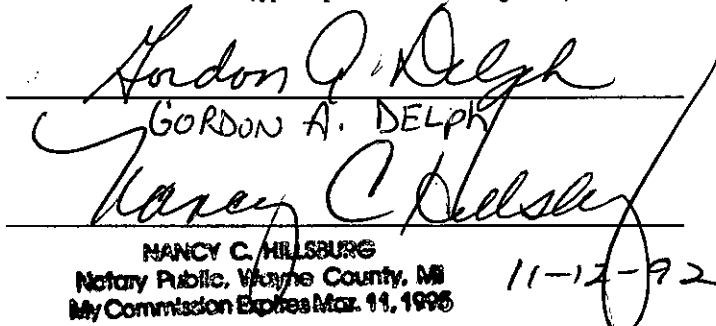 Gordon A. Delph
GORDON A. DELPH
Nancy C Hillsburg
NANCY C. HILLSBURG
Notary Public, Wayne County, MI
My Commission Expires Mar. 11, 1995
11-12-92